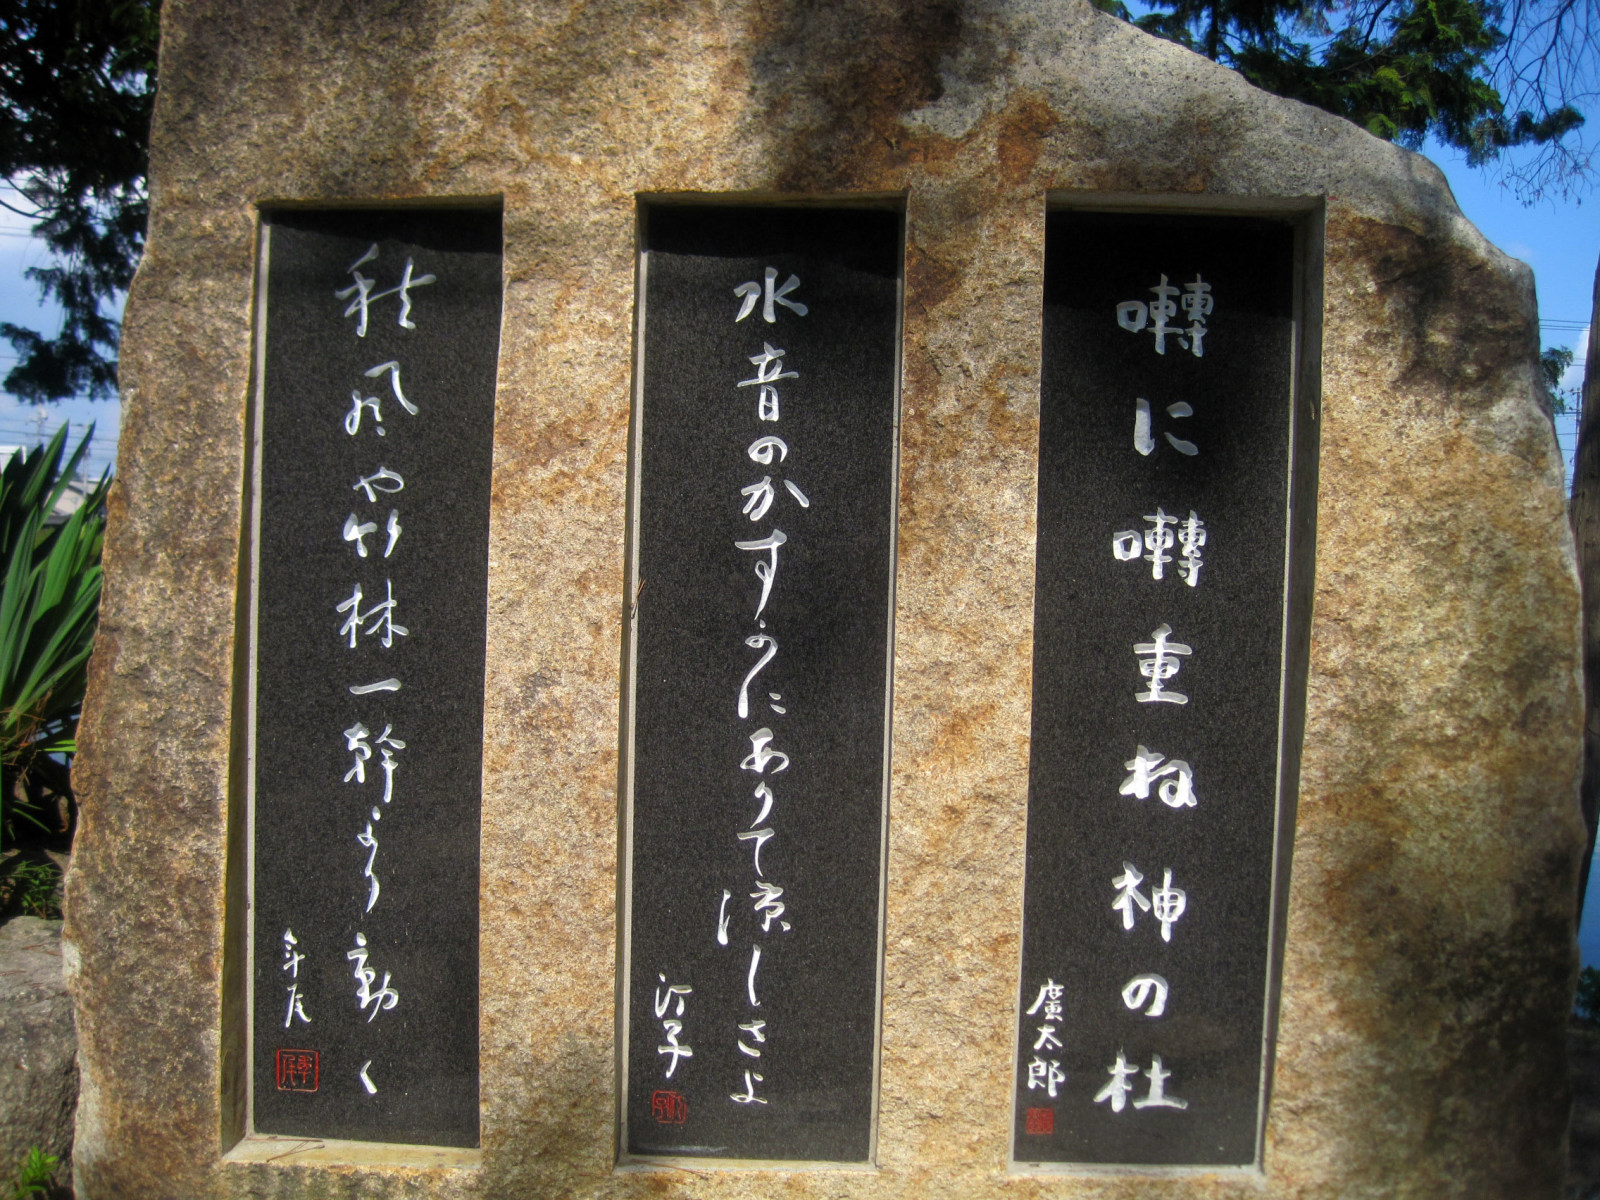 囀に囀重ね神の杜
廣太郎
水音のかすかにありて涼しさよ
汀子
秋風や竹林一幹より動く
年尾